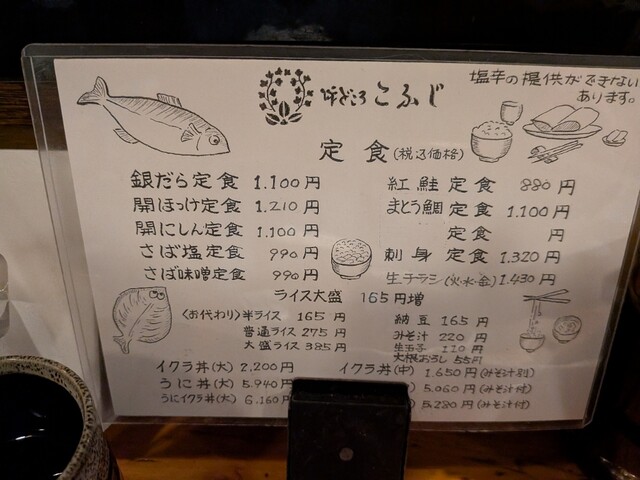 味どころ こふじ
塩辛の提供ができない
あります。
定食(税込価格)
銀だら定食 1.100円
開ほっけ定食 1.210円
開にしん定食 1.100円
さば塩定食 990円
さば味噌定食 990円
紅鮭定食 880円
まとう鯛定食 1.100円
定食 円
刺身定食 1.320円
生チラシ(火・水・金) 1.430円
ライス大盛 165円増
〈お代わり〉半ライス 165円
普通ライス 275円
大盛ライス 385円
納豆 165円
みそ汁 220円
生玉子 110円
大根おろし 55円
イクラ丼(大) 2,200円
うに丼(大) 5.940円
うにイクラ丼(大) 6,160
イクラ丼(中) 1.650円(みそ汁別)
5.060円(みそ汁付)
5,280円(みそ汁付)